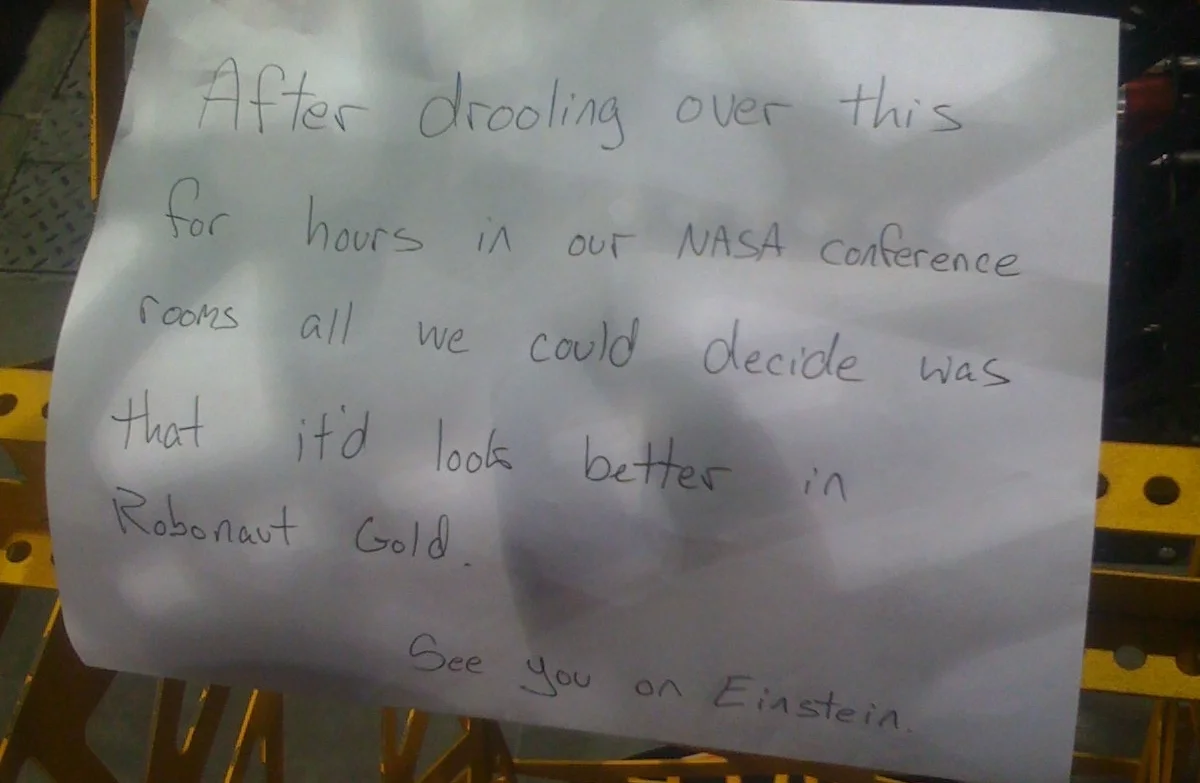 After drooling over this
for hours in our NASA conference
rooms all we could decide was
that it'd look better in
Robonaut Gold.
See you on Einstein.